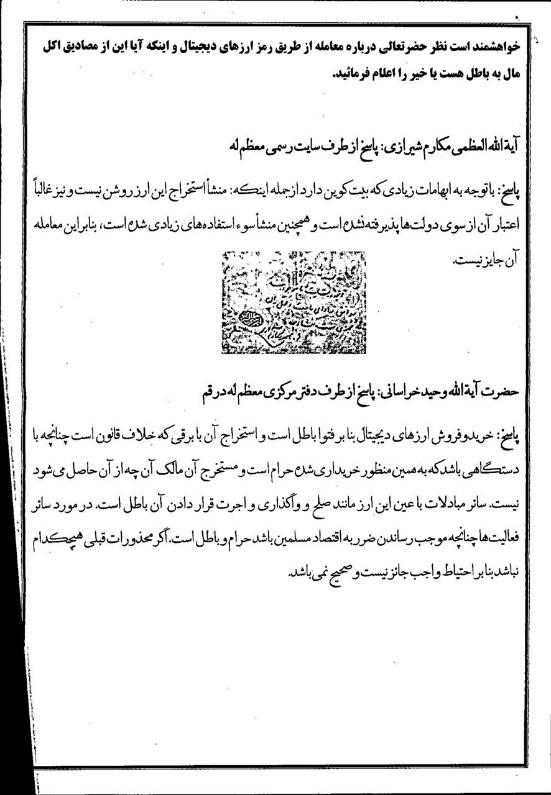 خواهشمند است نظر حضرتعالی درباره معامله از طریق رمز ارزهای دیجیتال و اینکه آیا این از مصادیق اکل
مال به باطل هست یا خیر را اعلام فرمائید.
آیة الله العظمی مکارم شیرازی: پاسخ از طرف سایت رسمی معظم له
پاسخ: با توجه به ابهامات زیادی که بیت کوین دارد از جمله اینکه: منشأ استخراج این ارز روشن نیست و نیز غالباً
اعتبار آن از سوی دولت‌ها پذیرفته نشده است و همچنین منشأ سوء استفاده‌های زیادی شده است، بنابراین معامله
آن جایز نیست.
حضرت آیة الله وحید خراسانی: پاسخ از طرف دفتر مرکزی معظم له در قم
پاسخ: خرید و فروش ارزهای دیجیتال بنا بر فتوا باطل است و استخراج آن با برقی که خلاف قانون است چنانچه با
دستگاهی باشد که به همین منظور خریداری شده حرام است و مستخرج آن مالک آن چه از آن حاصل می شود
نیست. سائر مبادلات با عین این ارز مانند صلح و واگذاری و اجرت قرار دادن آن باطل است. در مورد سائر
فعالیت‌ها چنانچه موجب رساندن ضرر به اقتصاد مسلمین باشد حرام و باطل است. اگر محذورات قبلی هیچکدام
نباشد بنا بر احتیاط واجب جائز نیست و صحیح نمی باشد.